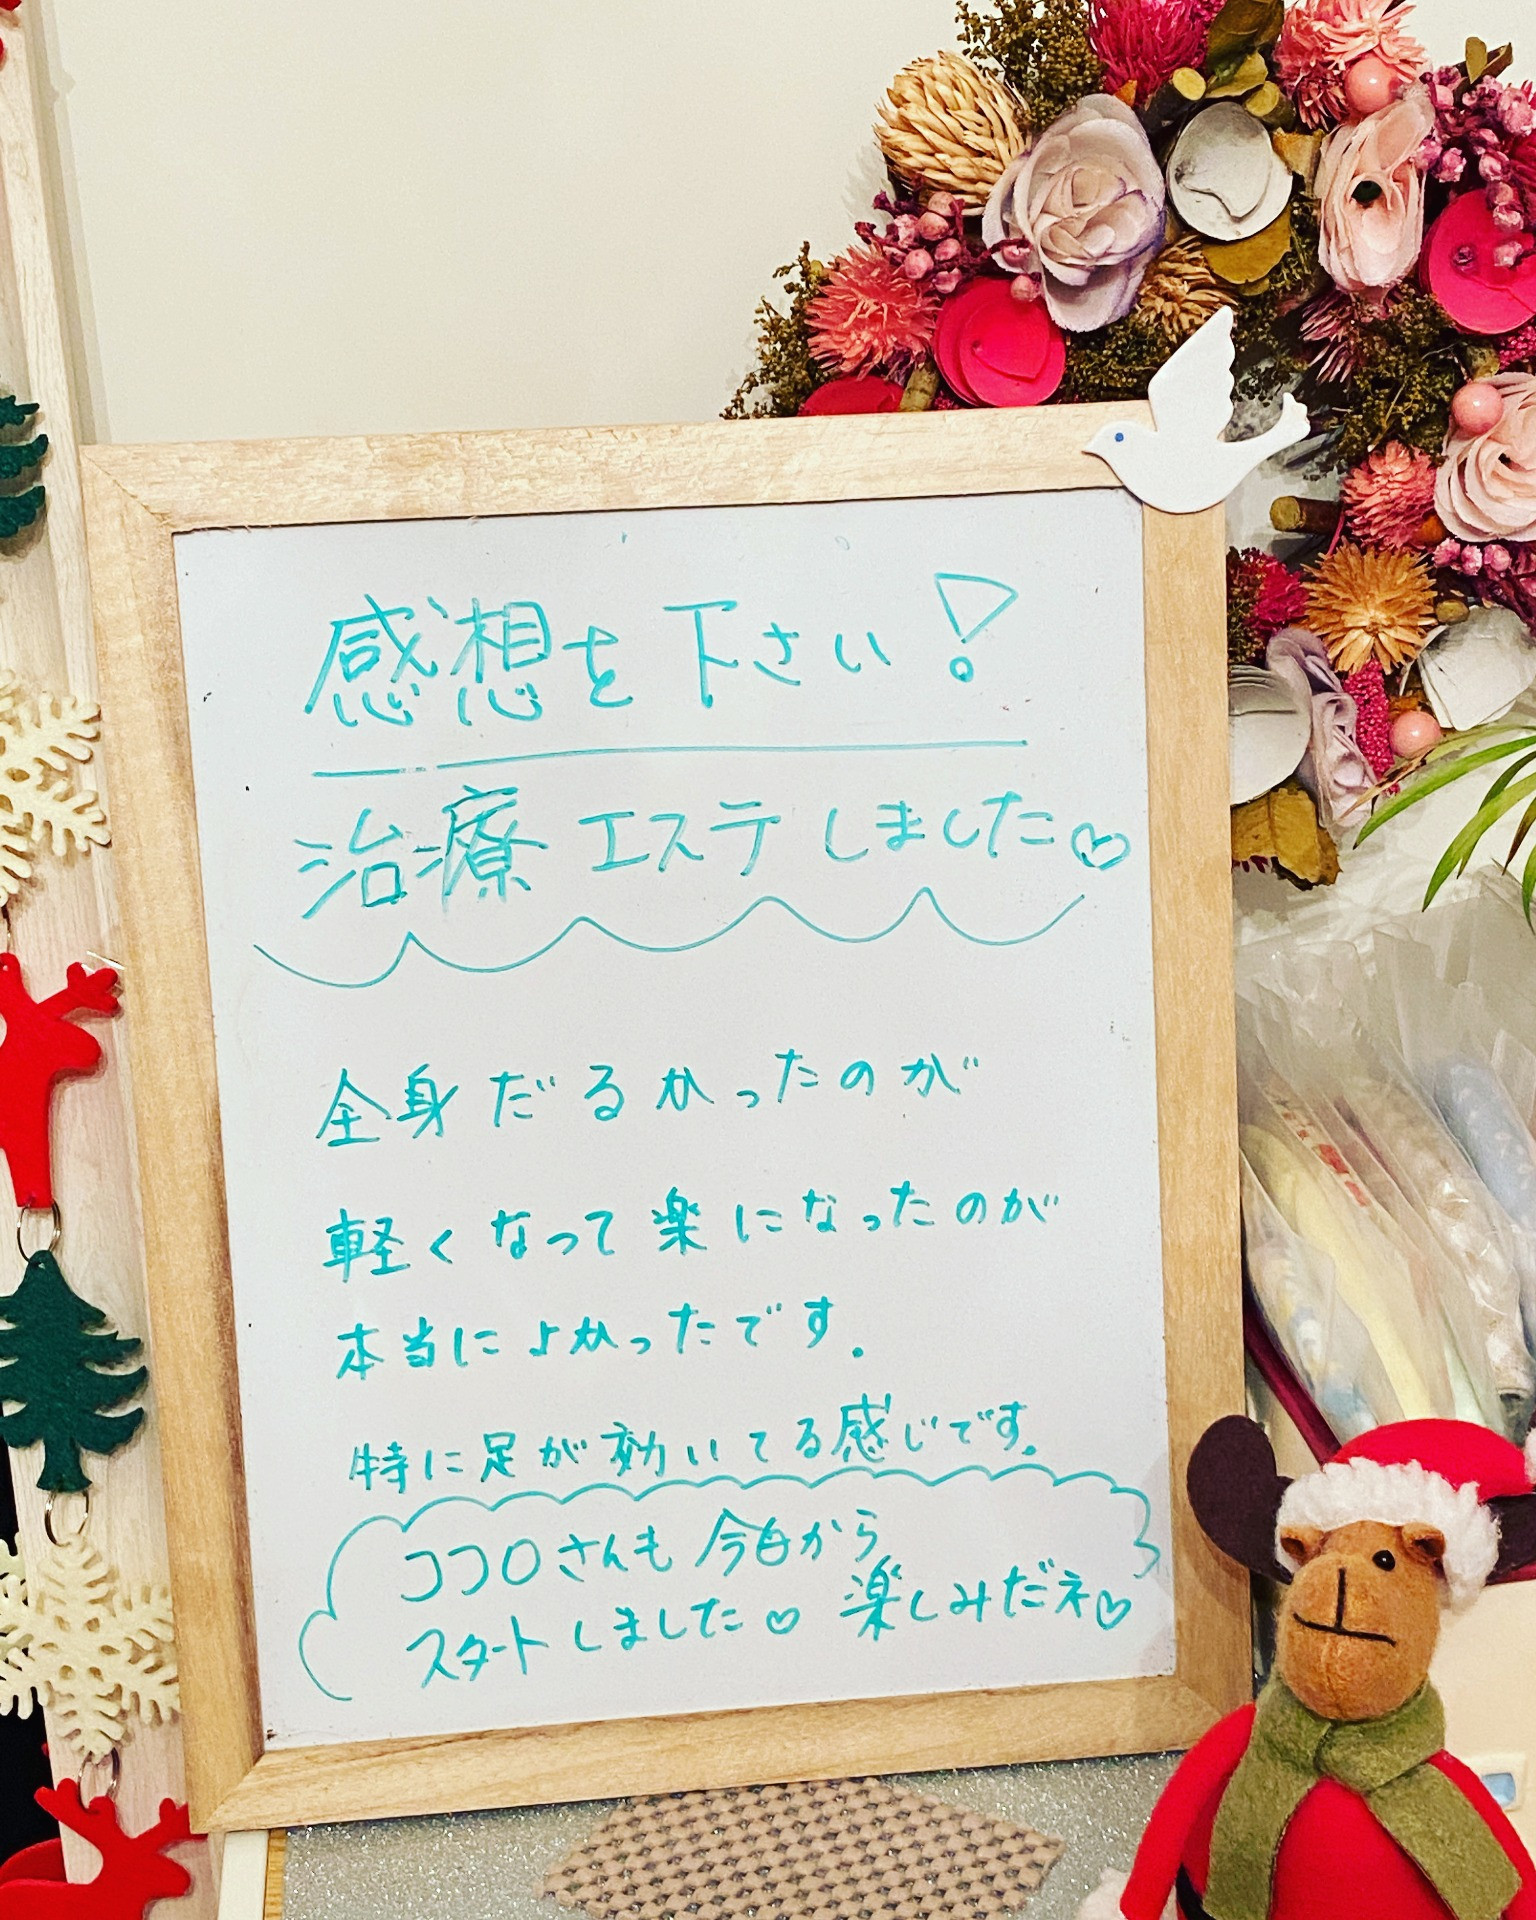 感想を下さい!
治療エステしました♡
全身だるかったのが
軽くなって楽になったのが
本当によかったです。
特に足が効いてる感じです。
ココロさんも今日から
スタートしました♡ 楽しみだネ♡